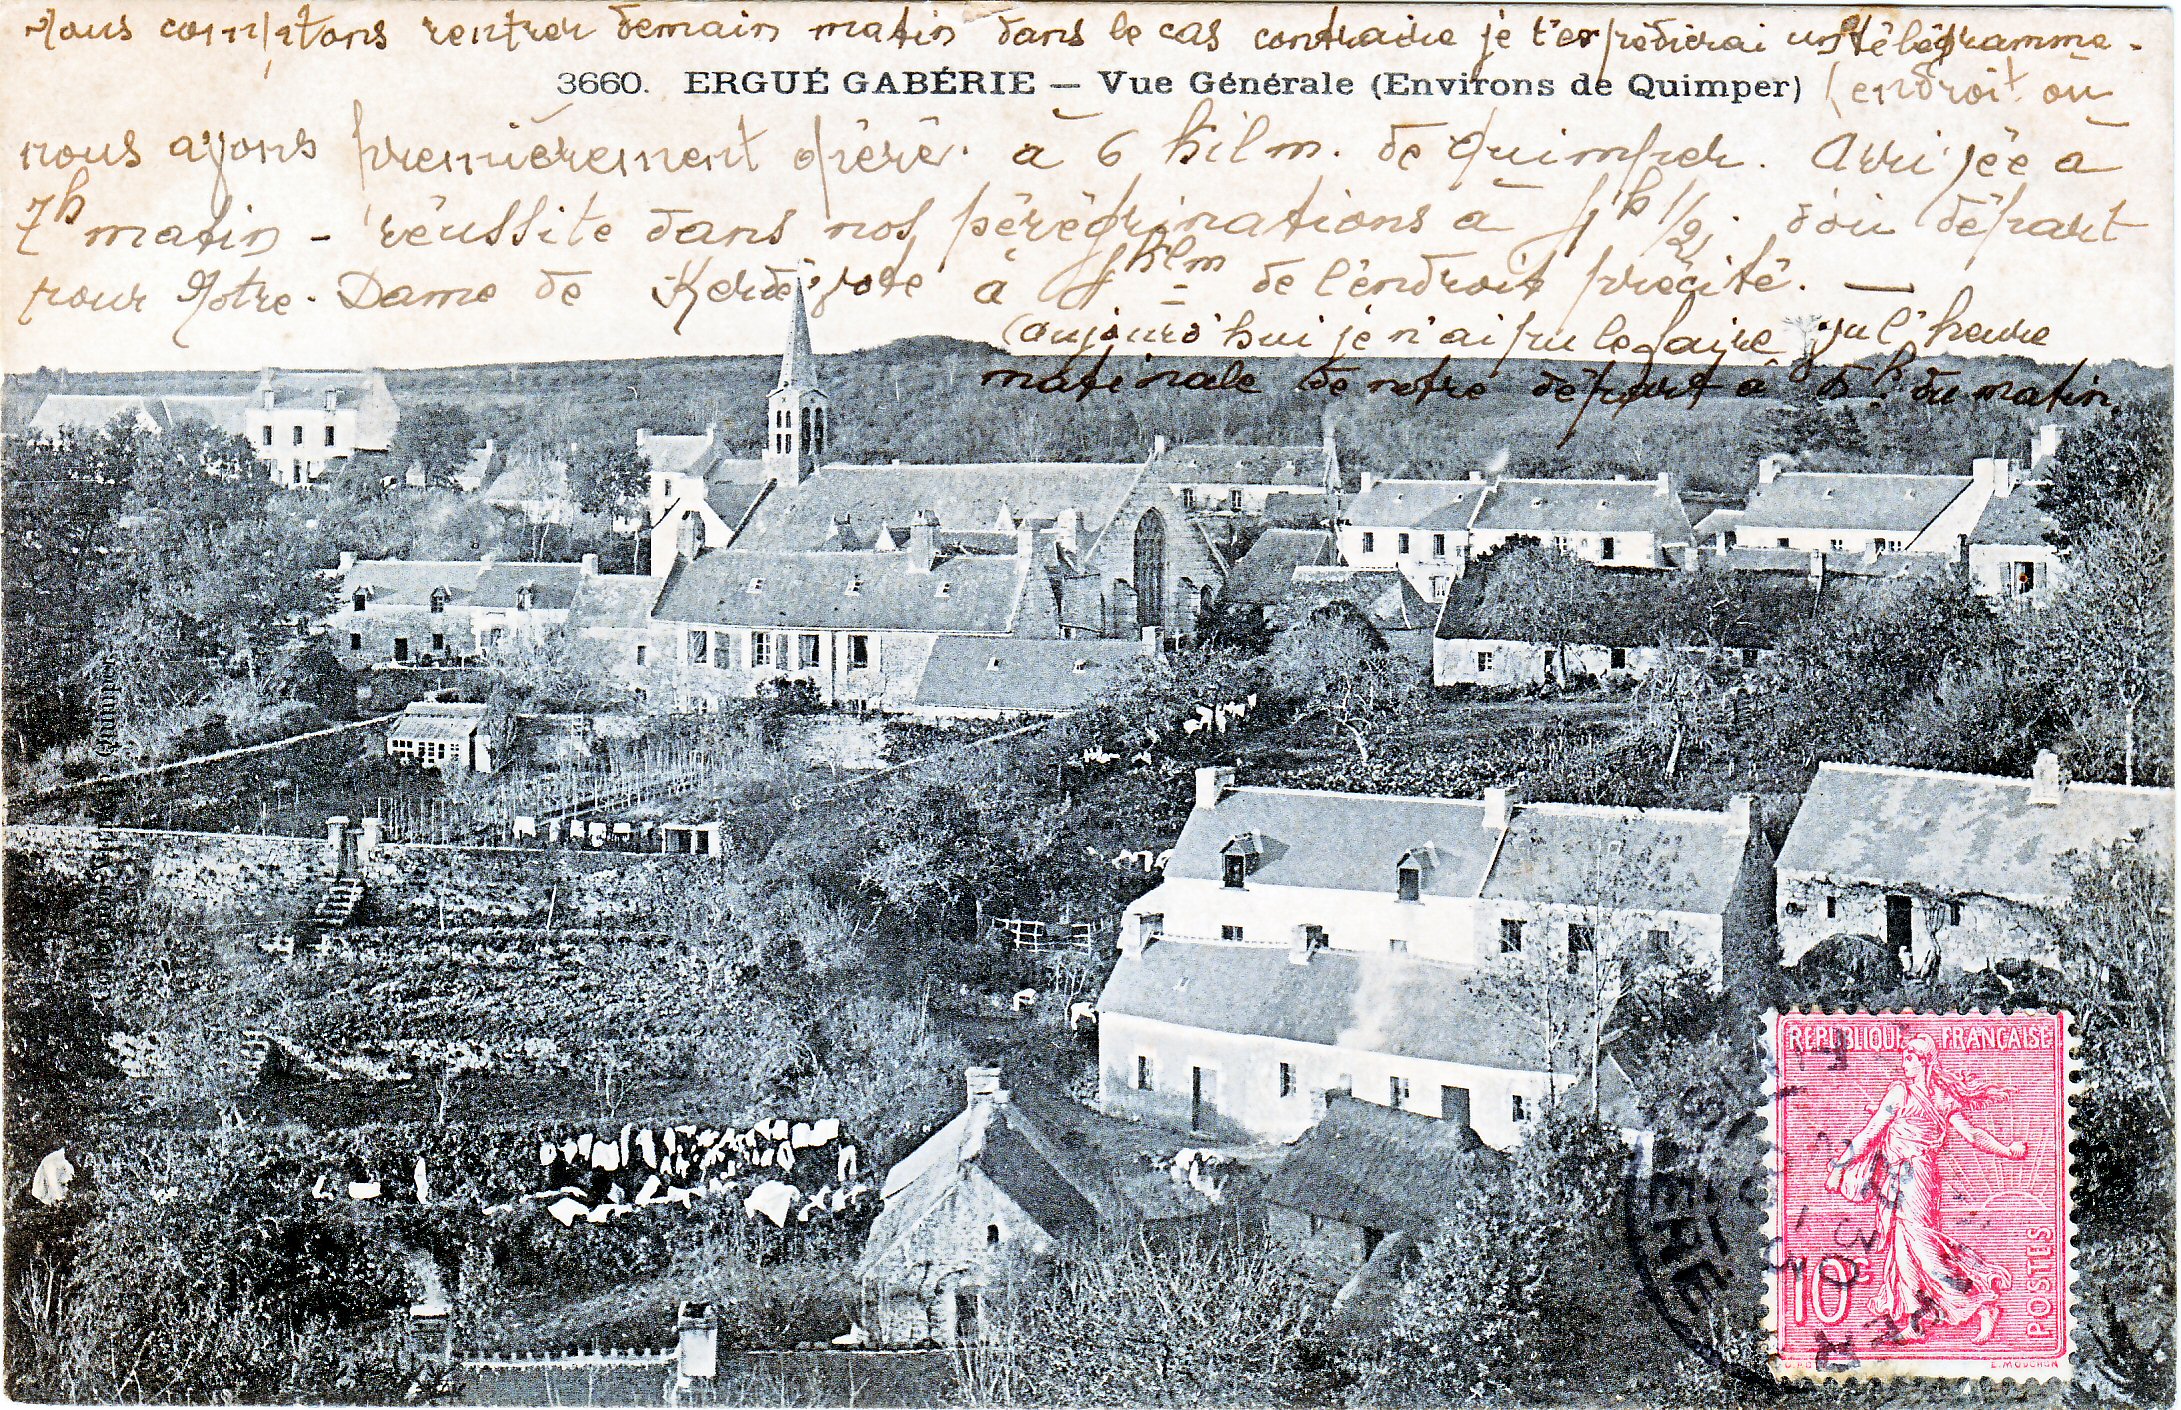 Nous comptons rentrer demain matin dans le cas contraire je t'expédierai un télégramme.
3660. ERGUÉ GABÉRIE — Vue Générale (Environs de Quimper)
(endroit où
nous avons premièrement opéré. à 6 kilm. de Quimper. Arrivée à
7h matin - réussite dans nos pérégrinations à 1h 1/2. d'où départ
pour Notre-Dame de Kerdévote à kilm de l'endroit précité. —
(aujourd'hui je n'ai pu le faire vu l'heure
matinale de notre départ à 5h. du matin.
REPUBLIQUE FRANÇAISE
10c
POSTES
E. MOUCHON